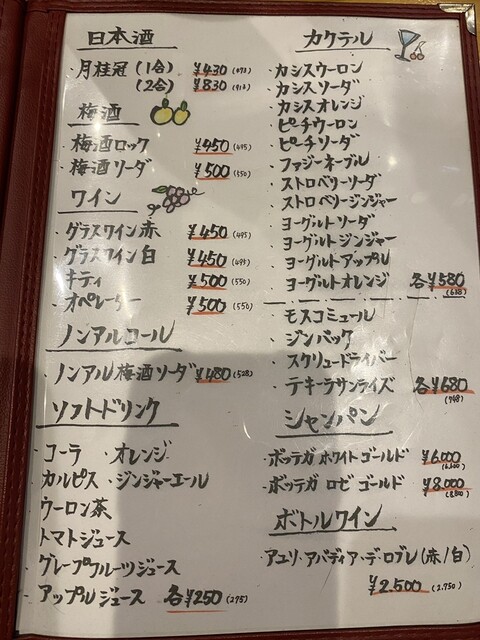 日本酒
・月桂冠 (1合) ¥430 (473)
(2合) ¥830 (913)
梅酒
・梅酒ロック ¥450 (495)
・梅酒ソーダ ¥500 (550)
ワイン
・グラスワイン赤 ¥450 (495)
・グラスワイン白 ¥450 (495)
・キティ ¥500 (550)
・オペレーター ¥500 (550)
ノンアルコール
・ノンアル梅酒ソーダ ¥480 (528)
ソフトドリンク
・コーラ ・オレンジ
・カルピス ・ジンジャーエール
・ウーロン茶
・トマトジュース
・グレープフルーツジュース
・アップルジュース 各¥250 (275)
カクテル
・カシスウーロン
・カシスソーダ
・カシスオレンジ
・ピーチウーロン
・ピーチソーダ
・ファジーネーブル
・ストロベリーソーダ
・ストロベリージンジャー
・ヨーグルトソーダ
・ヨーグルトジンジャー
・ヨーグルトアップル
・ヨーグルトオレンジ 各¥580
(638)
・モスコミュール
・ジンバック
・スクリュードライバー
・テキーラサンライズ 各¥680
(748)
シャンパン
・ボッテガ ホワイトゴールド ¥6.000
(6.600)
・ボッテガ ロゼ ゴールド ¥8.000
(8.800)
ボトルワイン
・アユソ・アバディア・デ・ロブレ (赤/白)
¥2.500 (2.750)